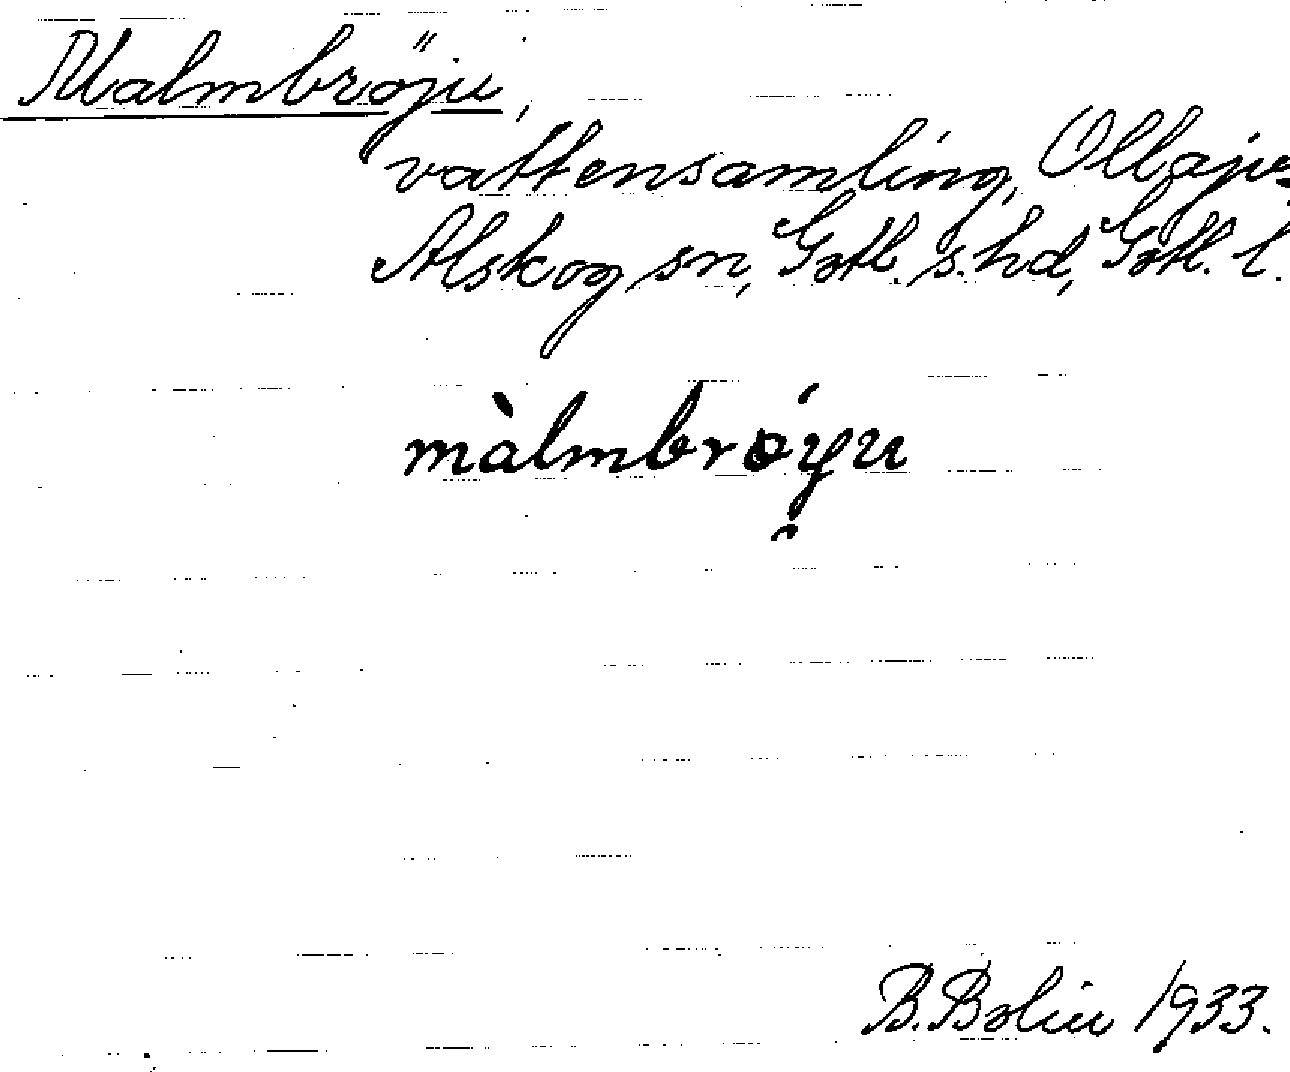 Malmbröju,
vattensamling, Ollajvs
Alskog sn, Gotl. s. hd, Gotl. l.
màlmbrøyu
B. Bolin 1933.